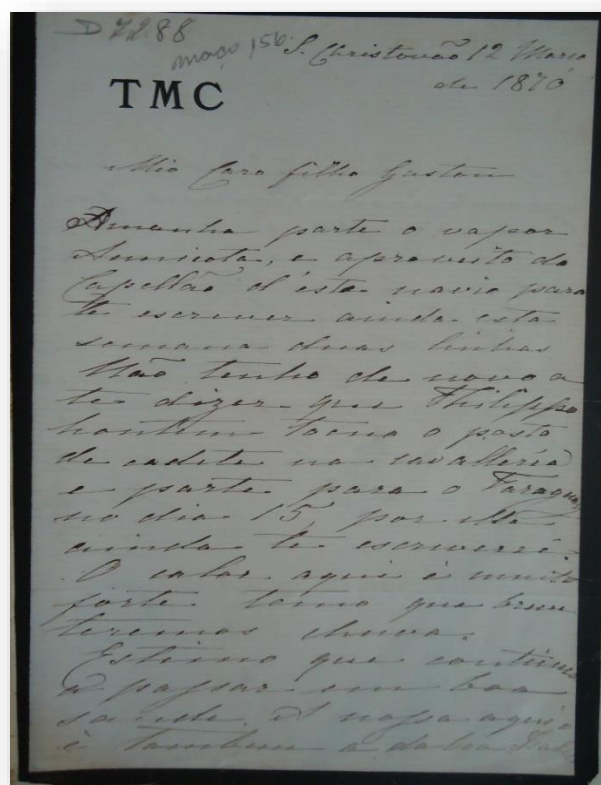 D 7288
maço 156
S. Christovão 12 Março
de 1870
TMC
Mio Caro filho Gaston
Amanha parte o vapor
e aproveito do
Capellão d'este navio para
te escrever ainda esta
semana duas linhas
Não tenho de novo a
te dizer que Philippe
hontem toma o posto
de cadete na cavalleria
e parte para o Paraguay
no dia 15, por elle
ainda te escreveréi.
O calor aqui è muito
forte temo que breve
teremos chuva.
Estimo que continues
a passar em boa
saude. A nossa aqui
è tambem a da boa